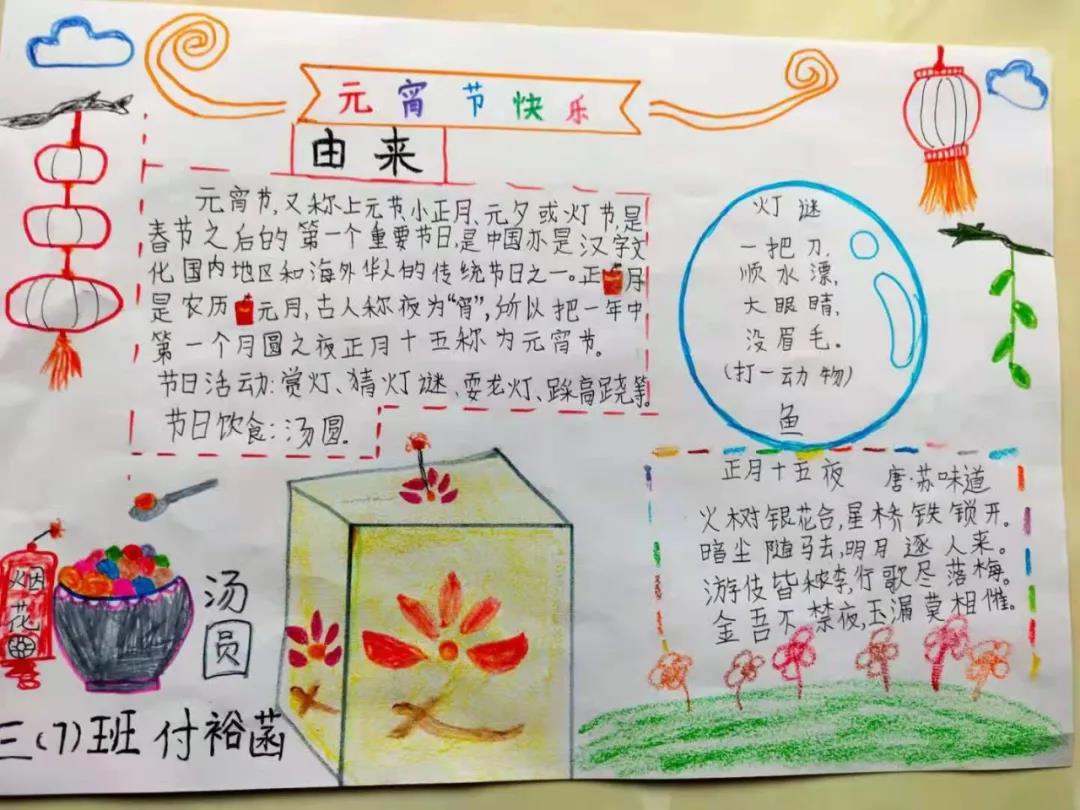 元宵节快乐
由来
元宵节,又称上元节、小正月、元夕或灯节,是
春节之后的第一个重要节日,是中国亦是汉字文
化国内地区和海外华人的传统节日之一。正月
是农历元月,古人称夜为“宵”,所以把一年中
第一个月圆之夜正月十五称为元宵节。
节日活动:赏灯、猜灯谜、耍龙灯、踩高跷等。
节日饮食:汤圆.
灯谜
一把刀,
顺水漂,
大眼睛,
没眉毛。
(打一动物)
鱼
正月十五夜 唐·苏味道
火树银花合,星桥铁锁开。
暗尘随马去,明月逐人来。
游伎皆秾李,行歌尽落梅。
金吾不禁夜,玉漏莫相催。
烟花
汤圆
三(7)班 付裕菡